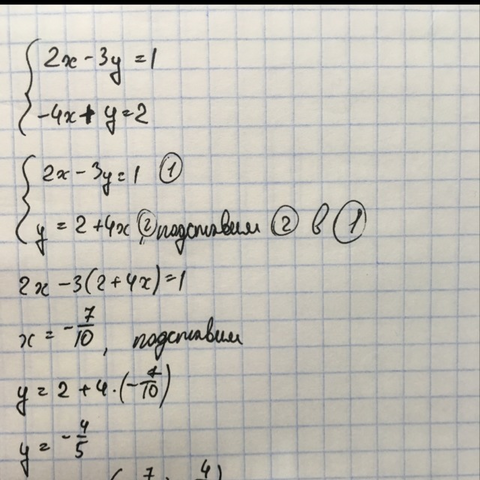 2x - 3y = 1
-4x + y = 2
2x - 3y = 1 ①
y = 2 + 4x ②, подставим ② в ①
2x - 3(2 + 4x) = 1
x = -7/10, подставим
y = 2 + 4·(-7/10)
y = -4/5